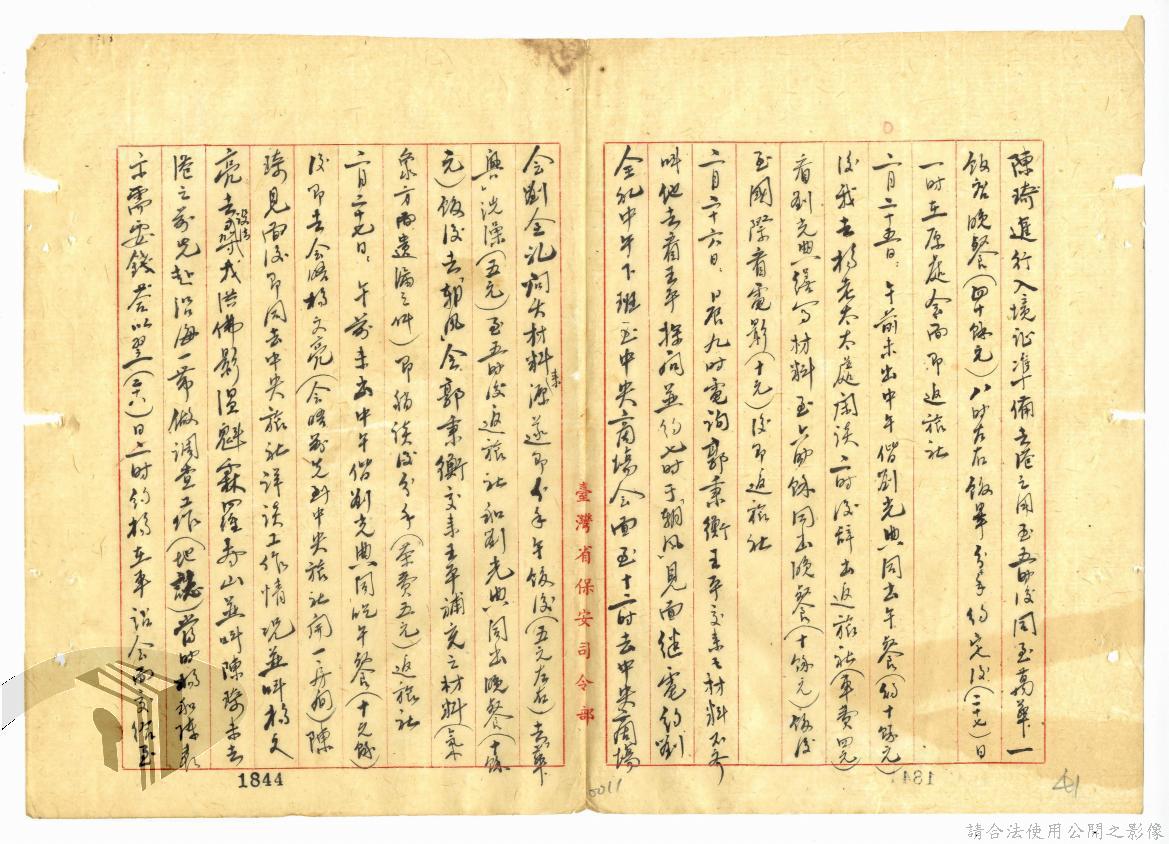 陳琦進行入境証準備去港之用至五时後同至萬華一
飯店晚餐(四十餘元)八时左右飯畢分手約定後(二十七)日
一时在原處会面即返旅社
二月二十五日:午前未出中午偕劉光典同去午餐(約十餘元)
後我去楊老太太處閑談二时後辞出返旅社(車費四元)
看劉光典繕写材料至六时餘同出晚餐(十餘元)飯後
至國際看電影(十元)後即返旅社
二月二十六日:早晨九时電詢郭秉衡王平交來之材料不齐
叫他去看王平探问並約七时于「朝风」見面继電約劉
全礼中午下班至中央商場会面至十二时去中央商場
会劉全礼詢问失材料來源遂即分手午飯後(五元左右)去「華
興」洗澡(五元)至五时後返旅社和劉光典同出晚餐(十餘
元)飯後去「朝风」会郭秉衡交來王平補充之材料(氣
象方面遺漏之件)即稍談後分手(茶費五元)返旅社
二月二十七日:午前未出中午偕劉光典同吃午餐(十元餘)
後即去会晤楊文亮(会晤前先到中央旅社開一房间)陳
琦見面後即同去中央旅社详談工作情况並叫楊文
亮去設法尋找洪佛影温魁森羅寿山並叫陳琦未去
港之前先赴沿海一带做調查工作(地誌)當时楊和陳表
示需要錢荅以翌(二十八)日二时約楊在車站会面交錢至
臺灣省保安司令部
1844
184
0011
41
請合法使用公開之影像